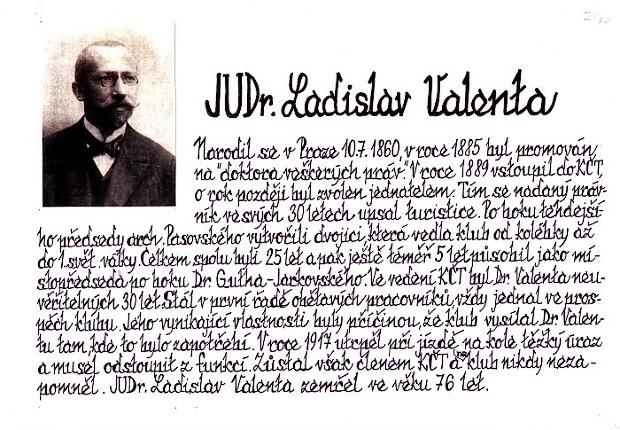 JUDr. Ladislav Valenta
Narodil se v Praze 10.7.1860, v roce 1885 byl promován
na "doktora veškerých práv." V roce 1889 vstoupil do KČT,
o rok později byl zvolen jednatelem. Tím se nadaný práv-
ník ve svých 30 letech upsal turistice. Po boku tehdejší-
ho předsedy arch. Pasovského vytvořili dvojici, která vedla klub od kolébky až
do 1. svět. války. Celkem spolu byli 25 let a pak ještě téměř 5 let působil jako mí-
stopředseda po boku Dr. Gutha-Jarkovského. Ve vedení KČT byl Dr. Valenta neu-
věřitelných 30 let. Stál v první řadě obětavých pracovníků, vždy jednal ve pros-
pěch klubu. Jeho vynikající vlastnosti byly příčinou, že klub vysílal Dr. Valen-
tu tam, kde to bylo zapotřebí. V roce 1917 utrpěl při jízdě na kole těžký úraz
a musel odstoupit z funkcí. Zůstal však členem KČT a klub nikdy neza-
pomněl. JUDr. Ladislav Valenta zemřel ve věku 76 let.